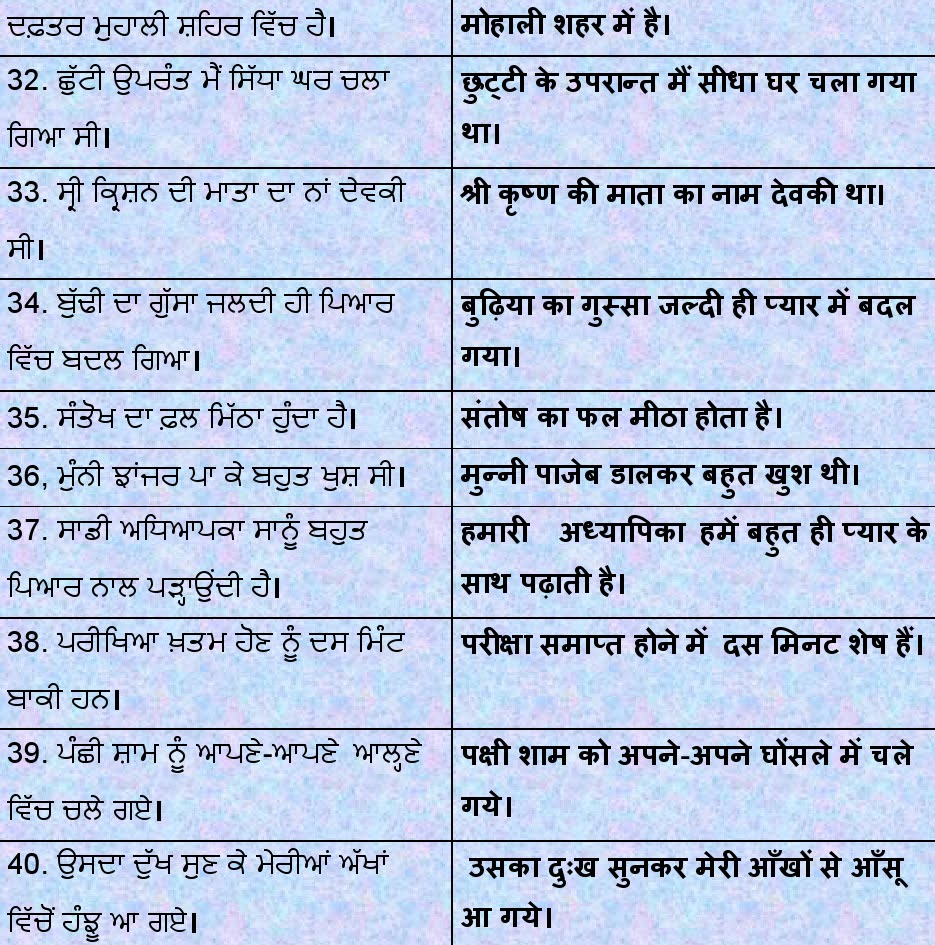 ਦਫ਼ਤਰ ਮੁਹਾਲੀ ਸ਼ਹਿਰ ਵਿੱਚ ਹੈ।
मोहाली शहर में है।
32. ਛੁੱਟੀ ਉਪਰੰਤ ਮੈਂ ਸਿੱਧਾ ਘਰ ਚਲਾ
ਗਿਆ ਸੀ।
छुट्टी के उपरान्त मैं सीधा घर चला गया
था।
33. ਸ੍ਰੀ ਕ੍ਰਿਸ਼ਨ ਦੀ ਮਾਤਾ ਦਾ ਨਾਂ ਦੇਵਕੀ
ਸੀ।
श्री कृष्ण की माता का नाम देवकी था।
34. ਬੁੱਢੀ ਦਾ ਗੁੱਸਾ ਜਲਦੀ ਹੀ ਪਿਆਰ
ਵਿੱਚ ਬਦਲ ਗਿਆ।
बुढ़िया का गुस्सा जल्दी ही प्यार में बदल
गया।
35. ਸੰਤੋਖ ਦਾ ਫ਼ਲ ਮਿੱਠਾ ਹੁੰਦਾ ਹੈ।
संतोष का फल मीठा होता है।
36, ਮੁੰਨੀ ਝਾਂਜਰ ਪਾ ਕੇ ਬਹੁਤ ਖੁਸ਼ ਸੀ।
मुन्नी पाजेब डालकर बहुत खुश थी।
37. ਸਾਡੀ ਅਧਿਆਪਕਾ ਸਾਨੂੰ ਬਹੁਤ
ਪਿਆਰ ਨਾਲ ਪੜ੍ਹਾਉਂਦੀ ਹੈ।
हमारी अध्यापिका हमें बहुत ही प्यार के
साथ पढ़ाती है।
38. ਪਰੀਖਿਆ ਖ਼ਤਮ ਹੋਣ ਨੂੰ ਦਸ ਮਿੰਟ
ਬਾਕੀ ਹਨ।
परीक्षा समाप्त होने में दस मिनट शेष हैं।
39. ਪੰਛੀ ਸ਼ਾਮ ਨੂੰ ਆਪਣੇ-ਆਪਣੇ ਆਲ੍ਹਣੇ
ਵਿੱਚ ਚਲੇ ਗਏ।
पक्षी शाम को अपने-अपने घोंसले में चले
गये।
40. ਉਸਦਾ ਦੁੱਖ ਸੁਣ ਕੇ ਮੇਰੀਆਂ ਅੱਖਾਂ
ਵਿੱਚੋਂ ਹੰਝੂ ਆ ਗਏ।
उसका दुःख सुनकर मेरी आँखों से आँसू
आ गये।